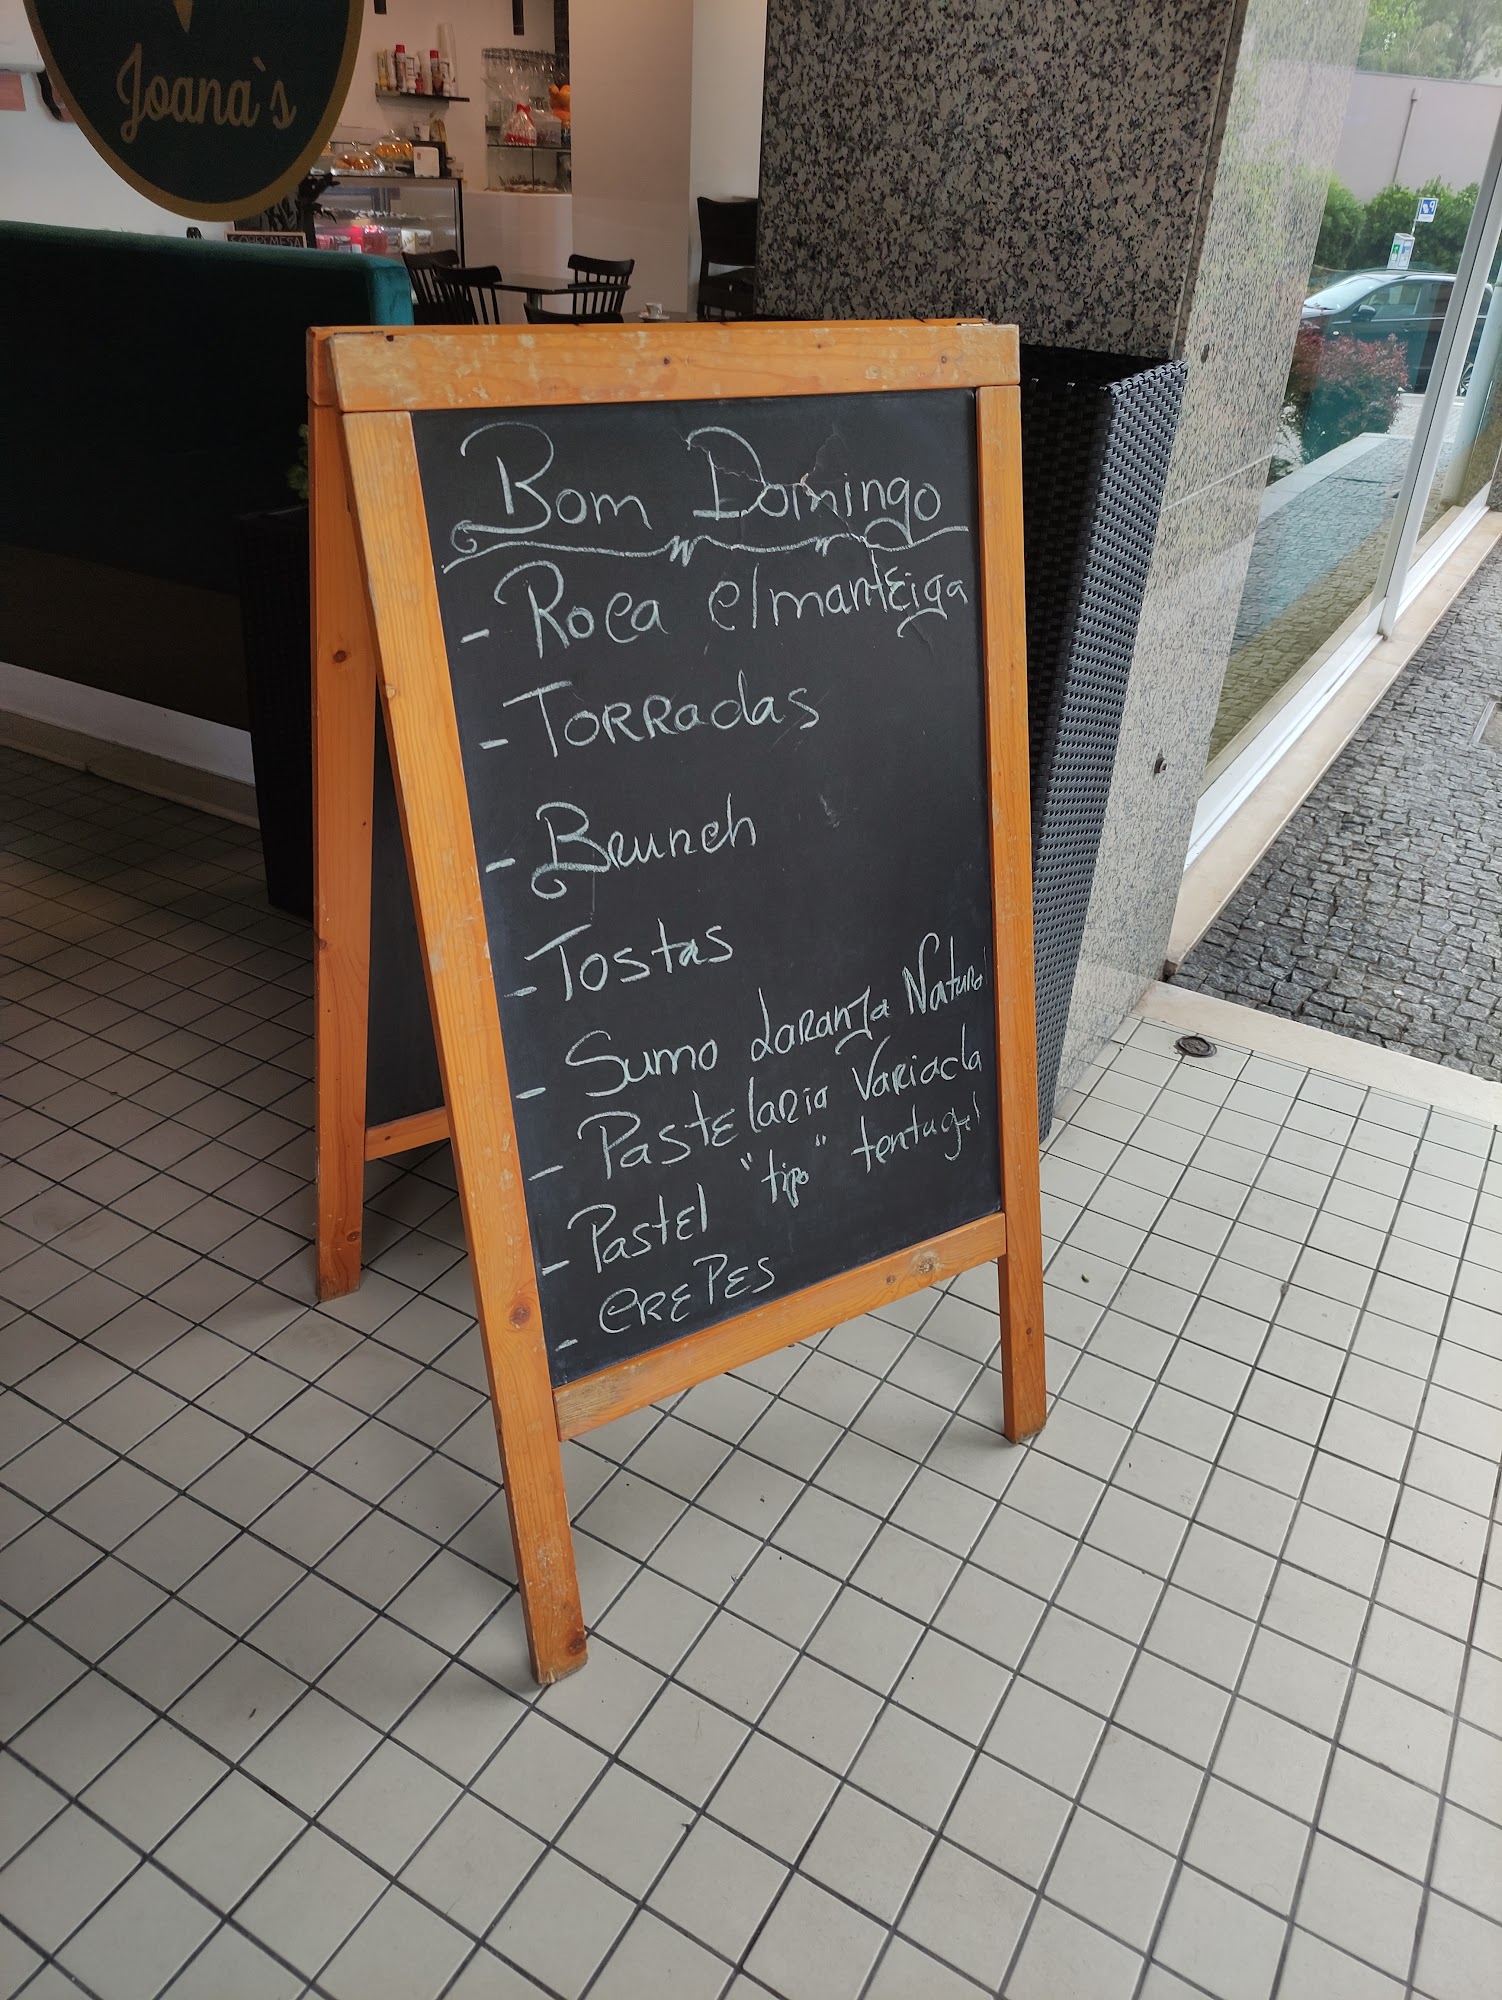 Joana`s
Bom Domingo
- Roca c/manteiga
- Torradas
- Brunch
- Tostas
- Sumo Laranja Natural
- Pastelaria Variada
- Pastel "tipo" tentugal
- CREPES